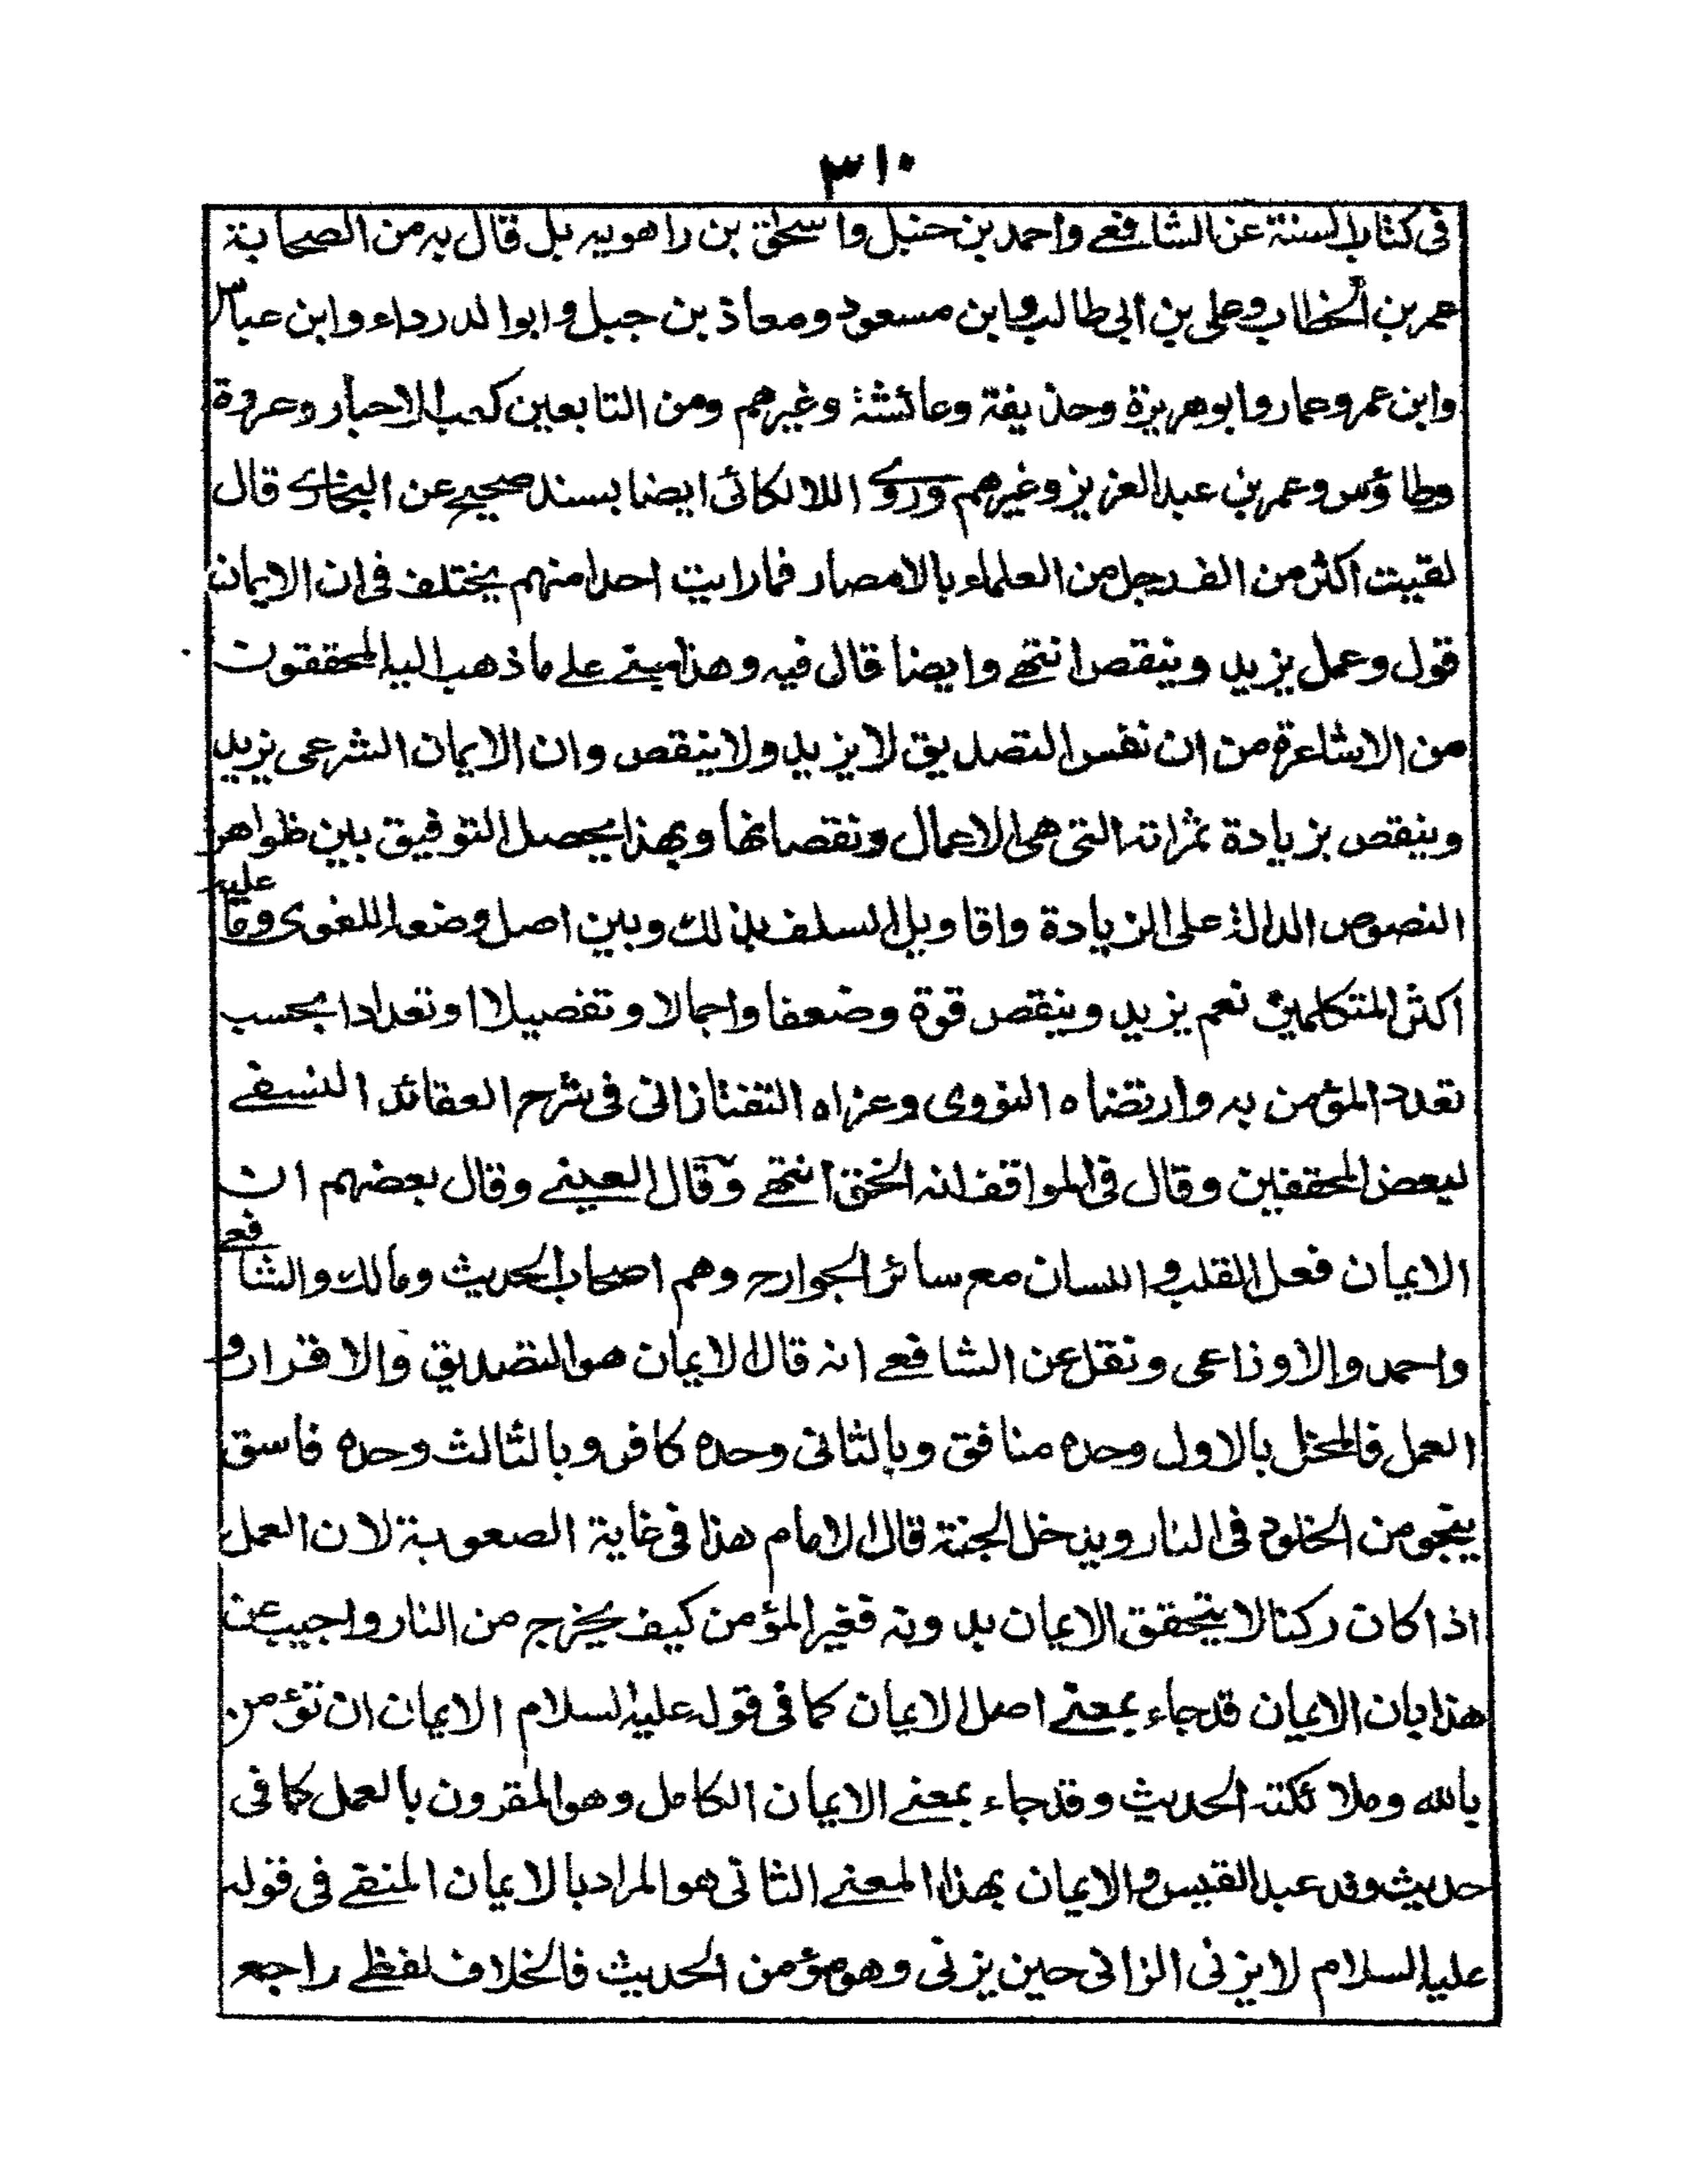 ٣١٠
فى كتاب السنة عن الشافعے واحمد بن حنبل واسحٰق بن راهويه بل قال به من الصحابة
عمر بن الخطاب وعلى بن ابى طالب وابن مسعود ومعاذ بن جبل وابوالدرداء وابن عباس
وابن عمر وعمار وابوهريرة وحذيفة وعائشة وغيرهم ومن التابعين كعب الاحبار وعروة
وطاؤس وعمر بن عبد العزيز وغيرهم وروے اللالكائى ايضا بسند صحيح عن البخارے قال
لقيت اكثر من الف رجل من العلماء بالامصار فما رايت احدا منهم يختلف فى ان الايمان
قول وعمل يزيد وينقص انتهے وايضا قال فيه وهذا مبنے علے ما ذهب اليه المحققون
من الاشاعرة من ان نفس التصديق لا يزيد ولا ينقص وان الايمان الشرعى يزيد
وينقص بزيادة ثمراته التى هى الاعمال ونقصانها وبهذا يحصل التوفيق بين ظواهر
النصوص الدالة على الزيادة واقاويل السلف بذلك وبين اصل وضعه اللغوى وما عليه
اكثر المتكلمين نعم يزيد وينقص قوة وضعفا واجمالا وتفصيلا او تعدادا بحسب
تعدد المؤمن به وارتضاه النووى وعزاه التفتازانى فى شرح العقائد النسفے
لبعض المحققين وقال فى المواقف انه الحق انتهے وقال العينے وقال بعضهم ان
الايمان فعل القلب و اللسان مع سائر الجوارح وهم اصحاب الحديث ومالك والشافعے
واحمد والاوزاعى ونقل عن الشافعے انه قال الايمان هو التصديق والاقرار و
العمل فالمخل بالاول وحده منافق وبالثانى وحده كافر وبالثالث وحده فاسق
ينجو من الخلود فى النار ويدخل الجنة قال الامام هذا فى غاية الصعوبة لان العمل
اذا كان ركنا لا يتحقق الايمان بدونه فغير المؤمن كيف يخرج من النار واجيب عن
هذا بان الايمان قد جاء بمعنے اصل الايمان كما فى قوله عليه السلام الايمان ان تؤمن
بالله وملائكته الحديث وقد جاء بمعنے الايمان الكامل وهو المقرون بالعمل كما فى
حديث وفد عبد القيس والايمان بهذا المعنے الثانى هو المراد بالايمان المنفے فى قوله
عليه السلام لا يزنى الزانى حين يزنى وهو مؤمن الحديث فالخلاف لفظے راجع